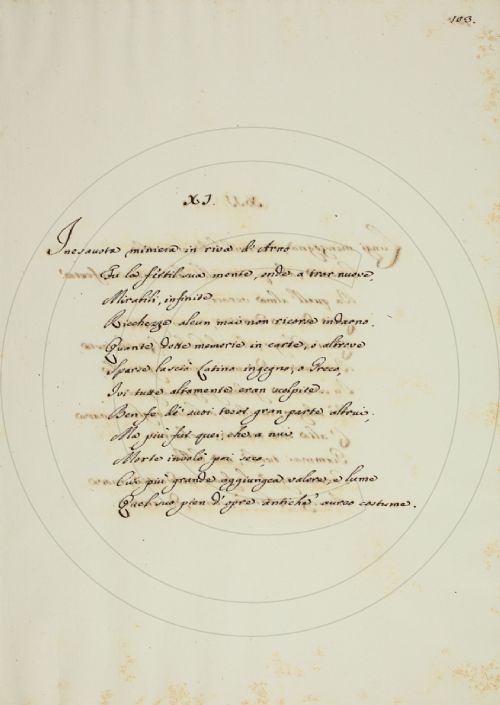 103.
XI.
Inesausta miniera in riva d'Arno
Fu la fertil sua mente, onde a trar nuove,
Mirabili, infinite
Ricchezze alcun mai non ricorse indarno.
Quante dotte memorie in carte, o altrove
Sparse lasciò Latino ingegno, o Greco,
Ivi tutte altamente eran scolpite.
Ben fe' de' suoi tesor gran parte altrui,
Ma più fur quei, che a nui
Morte involò poi seco,
Cui più grande aggiungea valore, e lume
Quel suo pien d'opre antiche aureo costume.